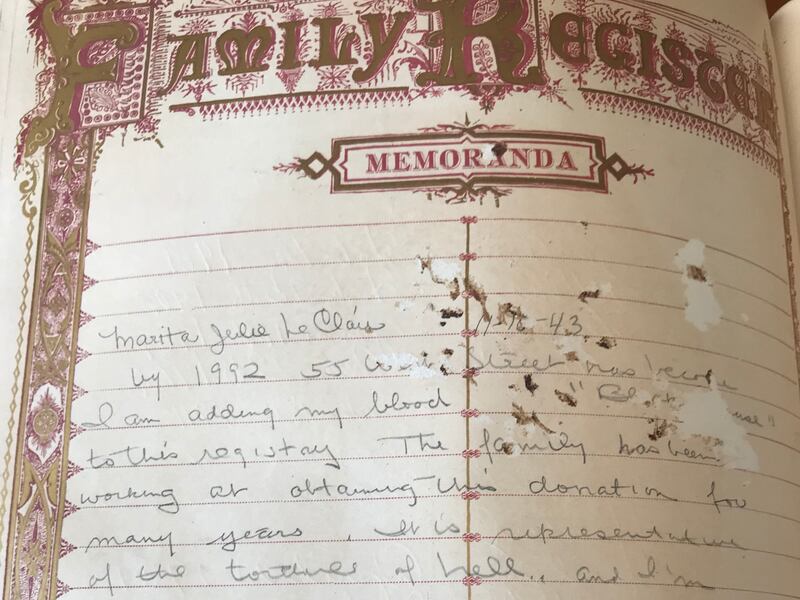 FAMILY REGISTER
MEMORANDA
Marita Julie LeClair -43
by 1992 55 Street has become
I am adding my blood
to this registry The family has been
working at obtaining this donation for
many years. It is representative
of the tortures of hell., and I'm